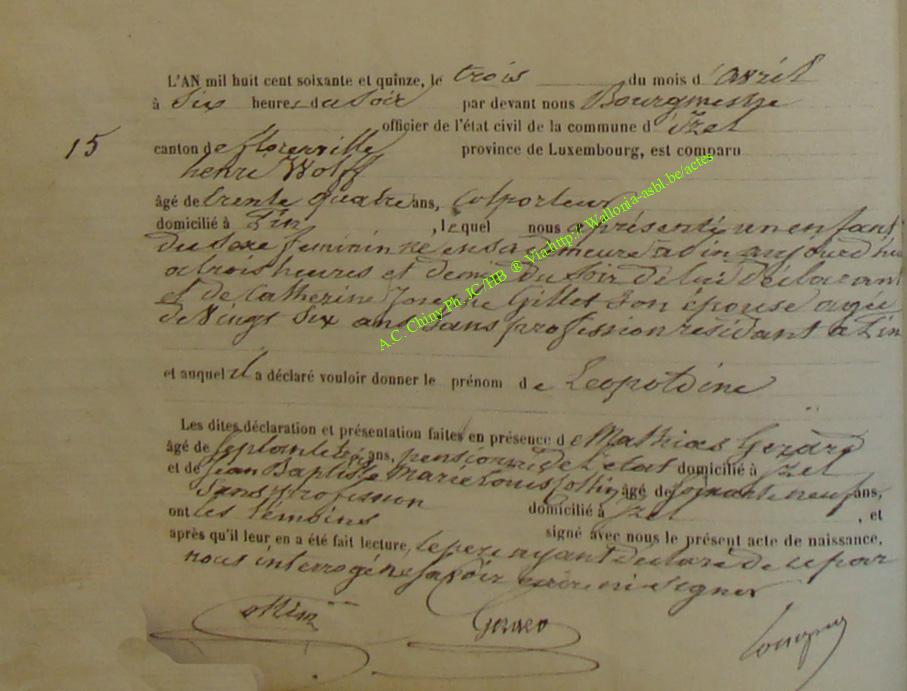 L'AN mil huit cent soixante et quinze, le trois du mois d'avril
à Six heures du Soir par devant nous Bourgmestre
officier de l'état civil de la commune d'Izel
15
canton de florenville province de Luxembourg, est comparu
henri Wolff
âgé de trente quatre ans, Colporteur
domicilié à Pin, lequel nous a présenté un enfant
du Sexe feminin né en sa demeure a Pin aujourd'hui
a trois heures et demie du Soir de lui déclarant
et de Catherine Josephe Gillet Son epouse agée
de Vingt Six ans Sans profession residant à Pin
et auquel il a déclaré vouloir donner le prénom de Leopoldine
Les dites déclaration et présentation faites en présence de Mathias Gérard
âgé de Septante ans, pensionné de l'etat domicilié à Izel
et de Jean Baptiste Marie Louis Collin âgé de Soixante neuf ans,
Sans Profession domicilié à Izel, et
ont les témoins signé avec nous le présent acte de naissance,
après qu'il leur en a été fait lecture, le pere ayant déclaré de ce par
nous interrogé ne Savoir ecrire ni Signer
Collin Gerard
A.C. Chiny Ph. JC/HB ® Via http:// Wallonia-asbl.be/actes